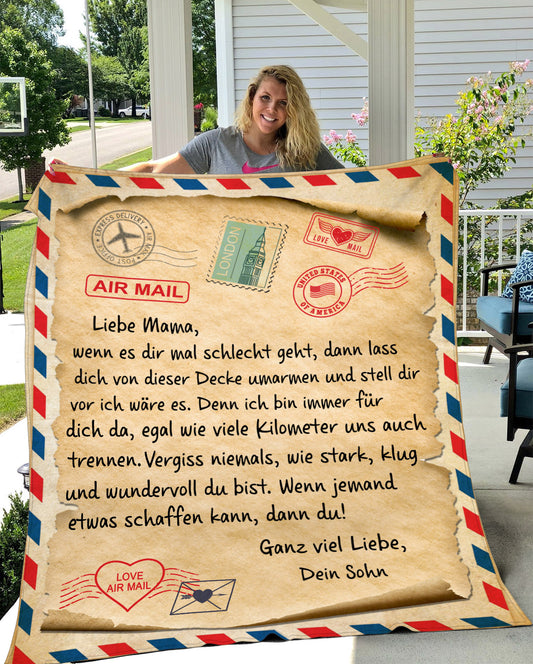 EXPRESS DELIVERY
AIR MAIL
POST OFFICE
LONDON
LOVE MAIL
UNITED STATES
OF AMERICA
AIR MAIL
Liebe Mama,
wenn es dir mal schlecht geht, dann lass
dich von dieser Decke umarmen und stell dir
vor ich wäre es. Denn ich bin immer für
dich da, egal wie viele Kilometer uns auch
trennen. Vergiss niemals, wie stark, klug
und wundervoll du bist. Wenn jemand
etwas schaffen kann, dann du!
Ganz viel Liebe,
Dein Sohn
LOVE
AIR MAIL